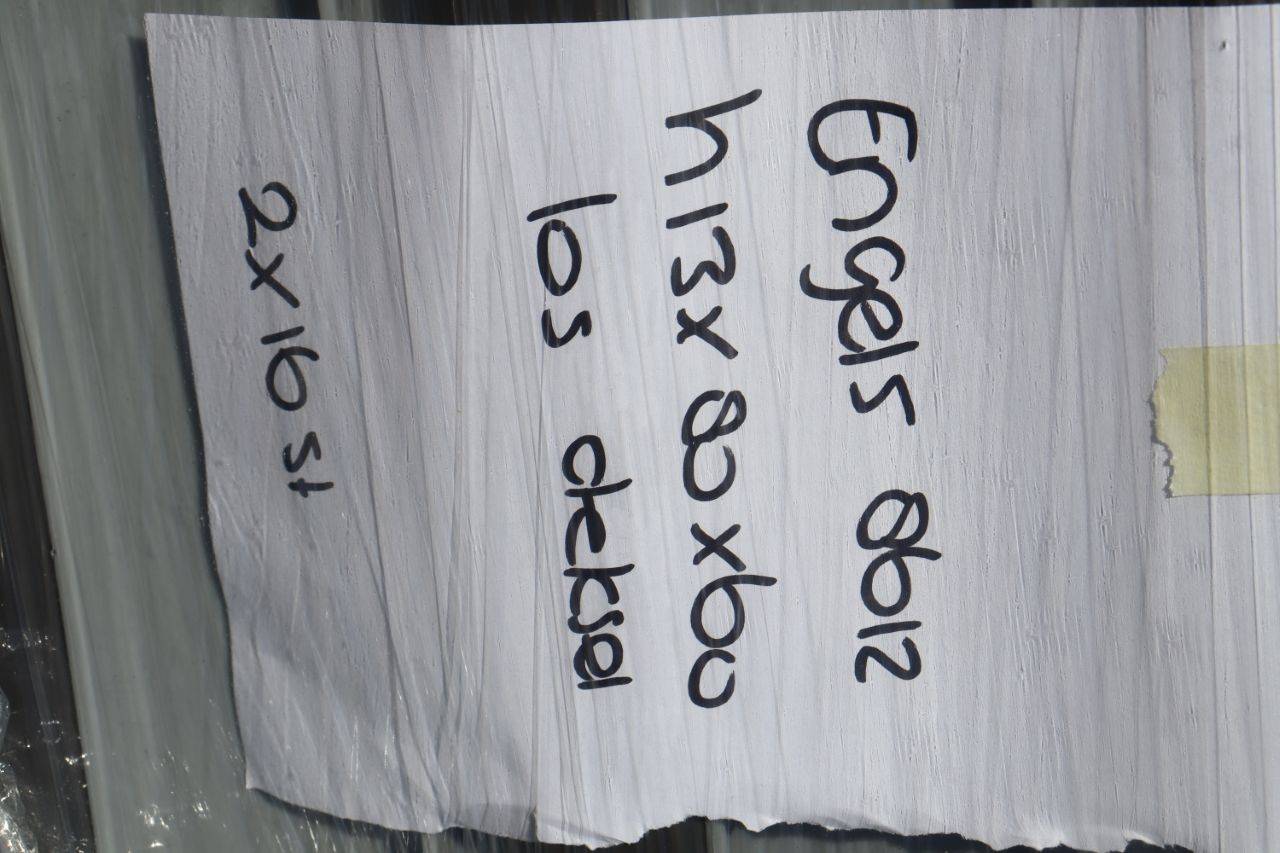 Engels 8612
h13x80x60
los deksel
2x16st